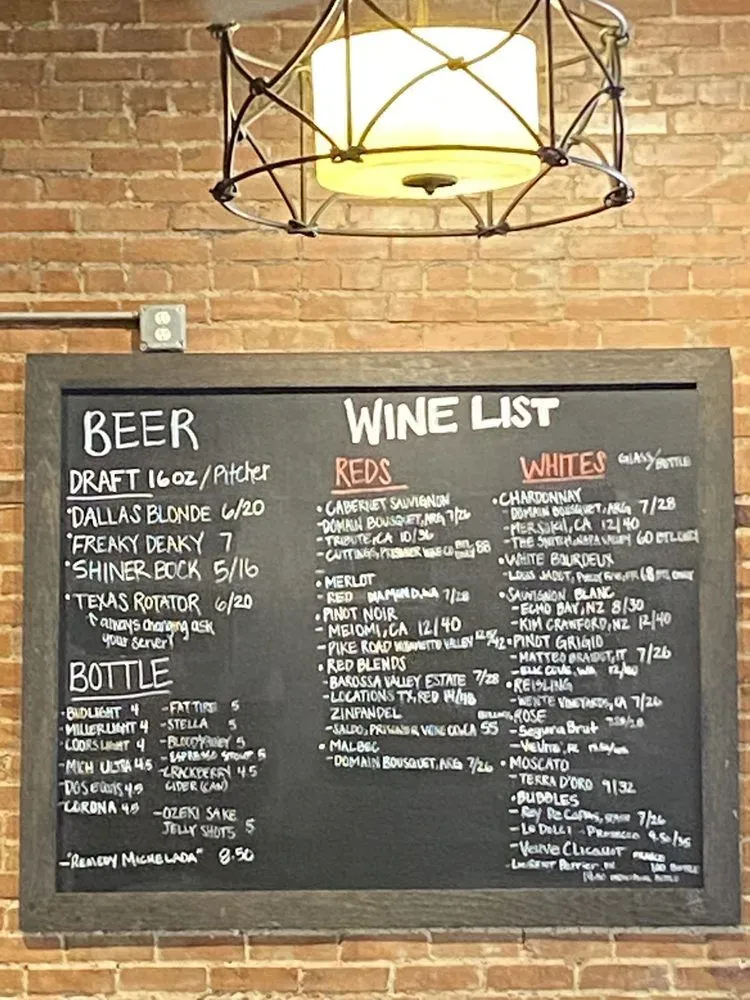 BEER
DRAFT 16OZ/Pitcher
•DALLAS BLONDE 6/20
•FREAKY DEAKY 7
•SHINER BOCK 5/16
•TEXAS ROTATOR 6/20
always changing ask
your server!
BOTTLE
-BUDLIGHT 4
-MILLER LIGHT 4
-COORS LIGHT 4
-MICH ULTRA 4.5
-DOS EQUIS 4.5
-CORONA 4.5
-FAT TIRE 5
-STELLA 5
-ESPRESSO STOUT 5
-CRACKBERRY 4.5
CIDER (CAN)
-OZEKI SAKE
JELLY SHOTS 5
-"REMEDY MICHELADA" 8.50
WINE LIST
REDS
•CABERNET SAUVIGNON
-DOMAIN BOUSQUET, ARG 7/26
-TRIBUTE, CA 10/36
-CUTTINGS, PRISONER WINE CO 88
•MERLOT
-RED DIAMOND, WA 7/28
•PINOT NOIR
-MEIOMI, CA 12/40
-PIKE ROAD WILLAMETTE VALLEY
•RED BLENDS
-BAROSSA VALLEY ESTATE 7/28
-LOCATIONS TX, RED 14/48
ZINFANDEL
-SALDO, PRISONER WINE CO, CA 55
•MALBEC
-DOMAIN BOUSQUET, ARG 7/26
WHITES GLASS/BOTTLE
•CHARDONNAY
-DOMAIN BOUSQUET, ARG 7/28
-MER SOLEIL, CA 12/40
-THE SNITCH, NAPA VALLEY 60 BTL ONLY
•WHITE BOURDEUX
-LOUIS JADOT, 68 BTL ONLY
•SAUVIGNON BLANC
-ECHO BAY, NZ 8/30
-KIM CRAWFORD, NZ 12/40
•PINOT GRIGIO
-MATTEO BRAIDOT, IT 7/26
-ELK COVE, 12/40
•REISLING
-WENTE VINEYARDS, CA 7/26
ROSE
-Segura Brut
•MOSCATO
-TERRA D'ORO 9/32
•BUBBLES
-Rey De Copas, SPAIN 7/26
-LA DOLCI - PROSECCO 9.50/35
-Veuve Clicquot
-LAURENT PERRIER, 100 BOTTLE
INDIVIDUAL BOTTLE